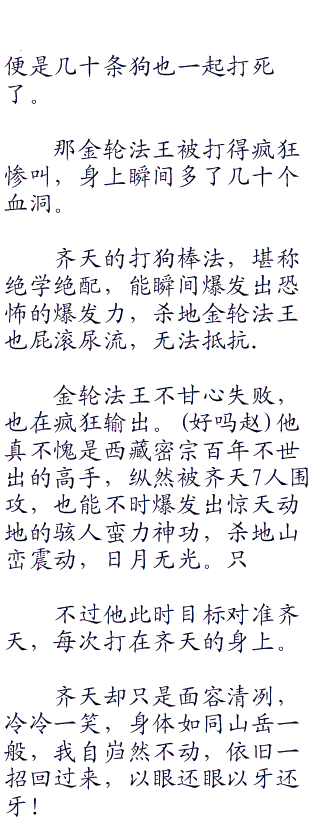 便是几十条狗也一起打死
了。
那金轮法王被打得疯狂
惨叫，身上瞬间多了几十个
血洞。
齐天的打狗棒法，堪称
绝学绝配，能瞬间爆发出恐
怖的爆发力，杀地金轮法王
也屁滚尿流，无法抵抗.
金轮法王不甘心失败，
也在疯狂输出。(好吗赵)他
真不愧是西藏密宗百年不世
出的高手，纵然被齐天7人围
攻，也能不时爆发出惊天动
地的骇人蛮力神功，杀地山
峦震动，日月无光。只
不过他此时目标对准齐
天，每次打在齐天的身上。
齐天却只是面容清冽，
冷冷一笑，身体如同山岳一
般，我自岿然不动，依旧一
招回过来，以眼还眼以牙还
牙！